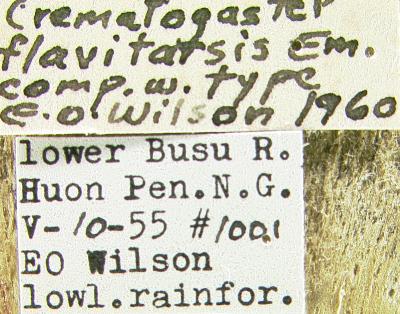 Crematogaster
flavitarsis Em.
comp. w. type
E.O. Wilson 1960
lower Busu R.
Huon Pen. N.G.
V-10-55 #1001
EO Wilson
lowl.rainfor.